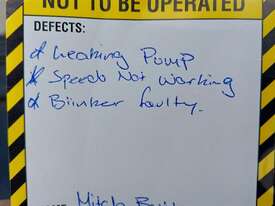 NOT TO BE OPERATED
DEFECTS:
* Leaking Pump
* Speeds Not Working
* Blinker faulty.
Mitch